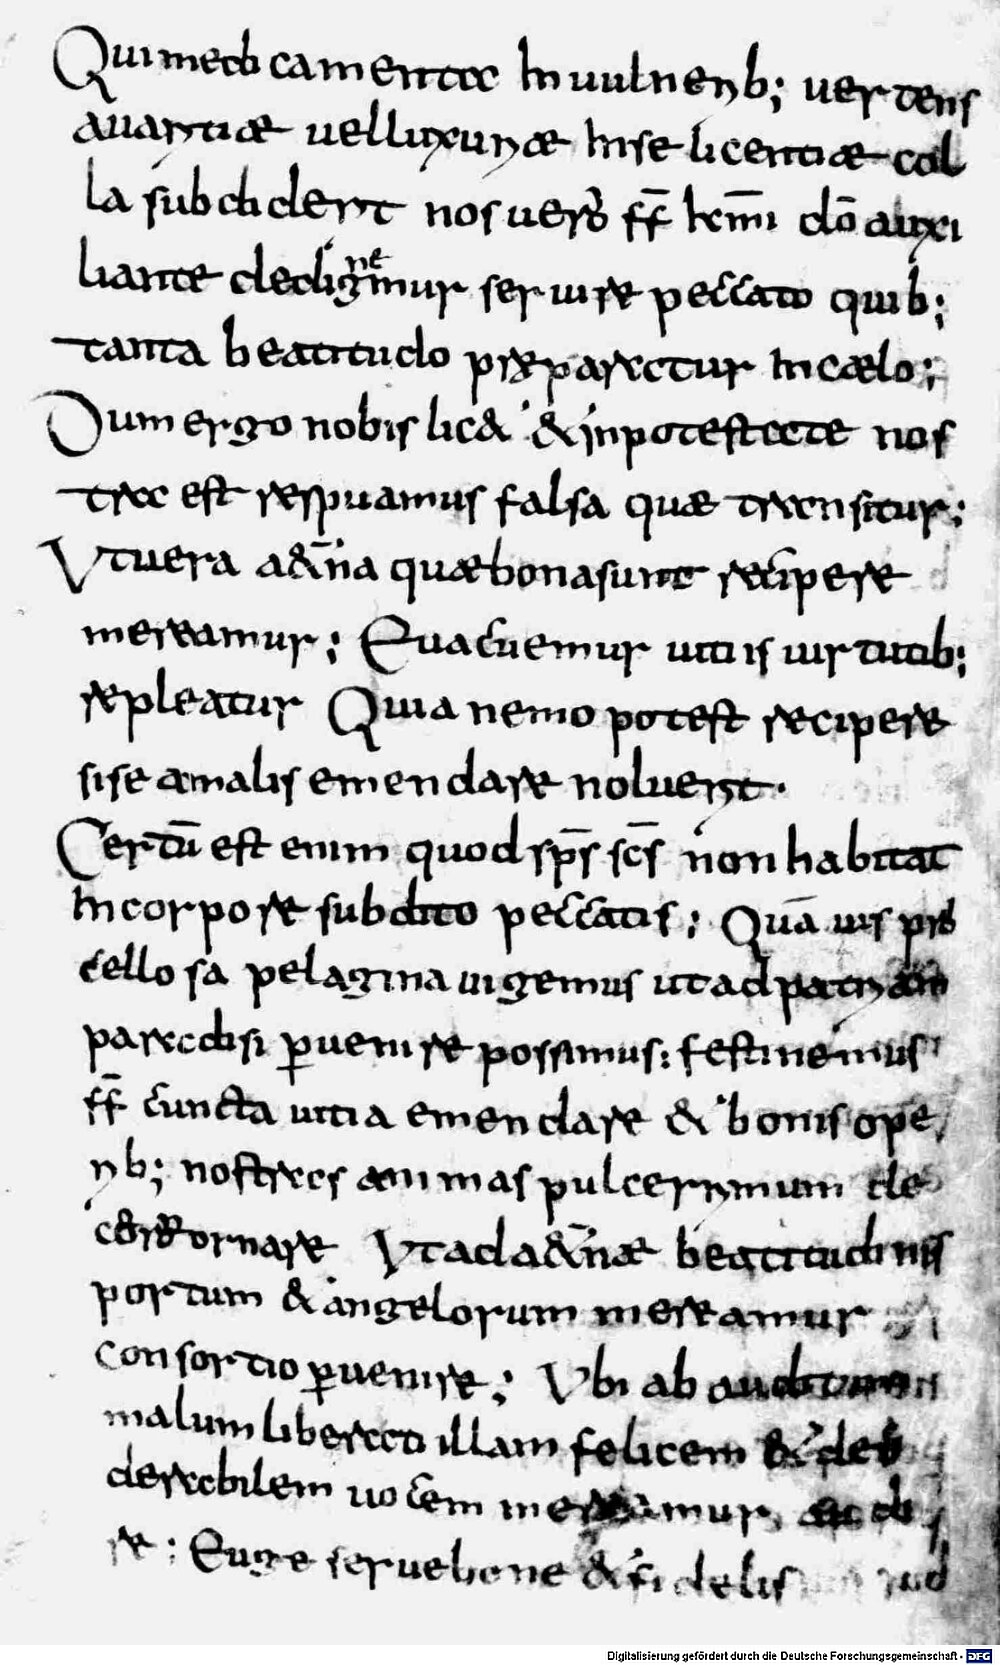 Qui medicamenta In uulnerib; uertens
auaritiæ uel luxuriæ In se licentiæ col
la subdiderit nos uero f̄f̄ kr̄mi dō auxi
liante dedignemur seruire peccato quib;
tanta beatitudo præparatur In cælo;
Dum ergo nobis lic& & in potestate nos
tra est respuamus falsa quæ transitur;
Ut uera a&̄na quæ bona sunt recipere
mereamur; Euacuemur uitiis uirtutib;
repleatur Quia nemo potest recipere
si se a malis emendare noluerit.
Certū est enim quod sp̄s sc̄s non habitat
In corpore subdito peccatis; Quā uis pro
cello sa pelagina uigemus ut ad patriam
paradisi ꝑuenire possimus; festinemus
f̄f̄ cuncta uitia emendare & bonis ope
rib; nostras animas pulcerrimum de
cor ornare Ut ad a&̄næ beatitudinis
portum & angelorum mereamur
consortio ꝑuenire; Ubi ab
malum liberati illam felicem & desi
derabilem uocem mereamur audi
re; Euge serue bone & fidelis